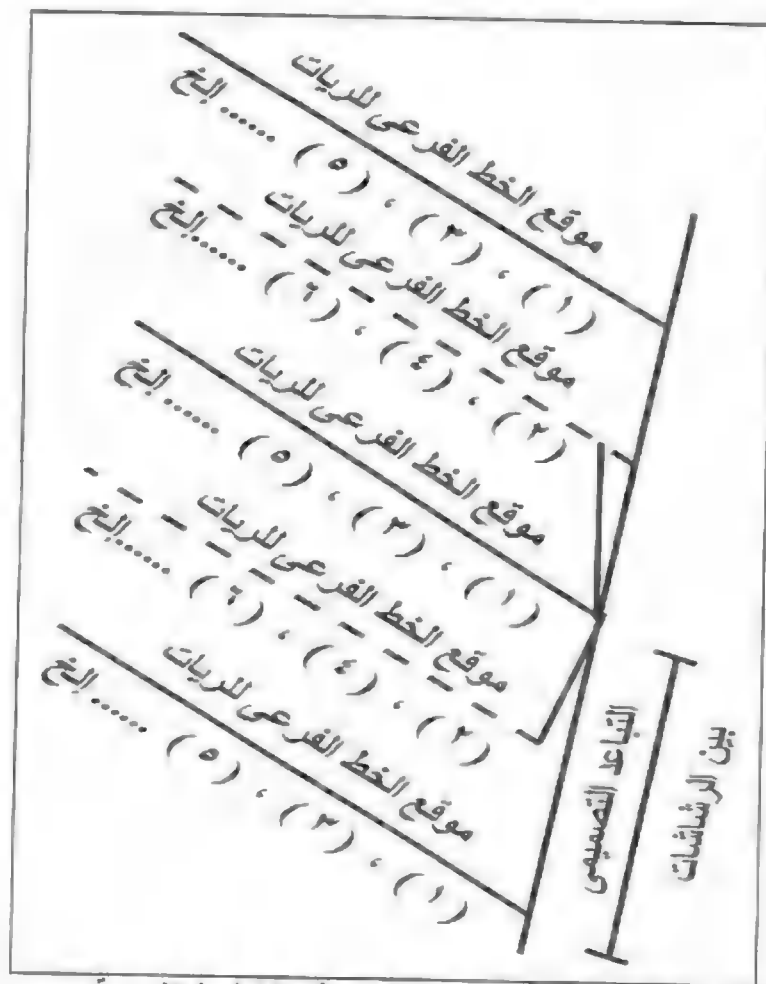 موقع الخط الفرعى للريات
(١) ، (٣) ، (٥) ......إلخ
موقع الخط الفرعى للريات
(٢) ، (٤) ، (٦) ......إلخ
موقع الخط الفرعى للريات
(١) ، (٣) ، (٥) ......إلخ
موقع الخط الفرعى للريات
(٢) ، (٤) ، (٦) ......إلخ
موقع الخط الفرعى للريات
(١) ، (٣) ، (٥) ......إلخ
التباعد التصميمى
بين الرشاشات